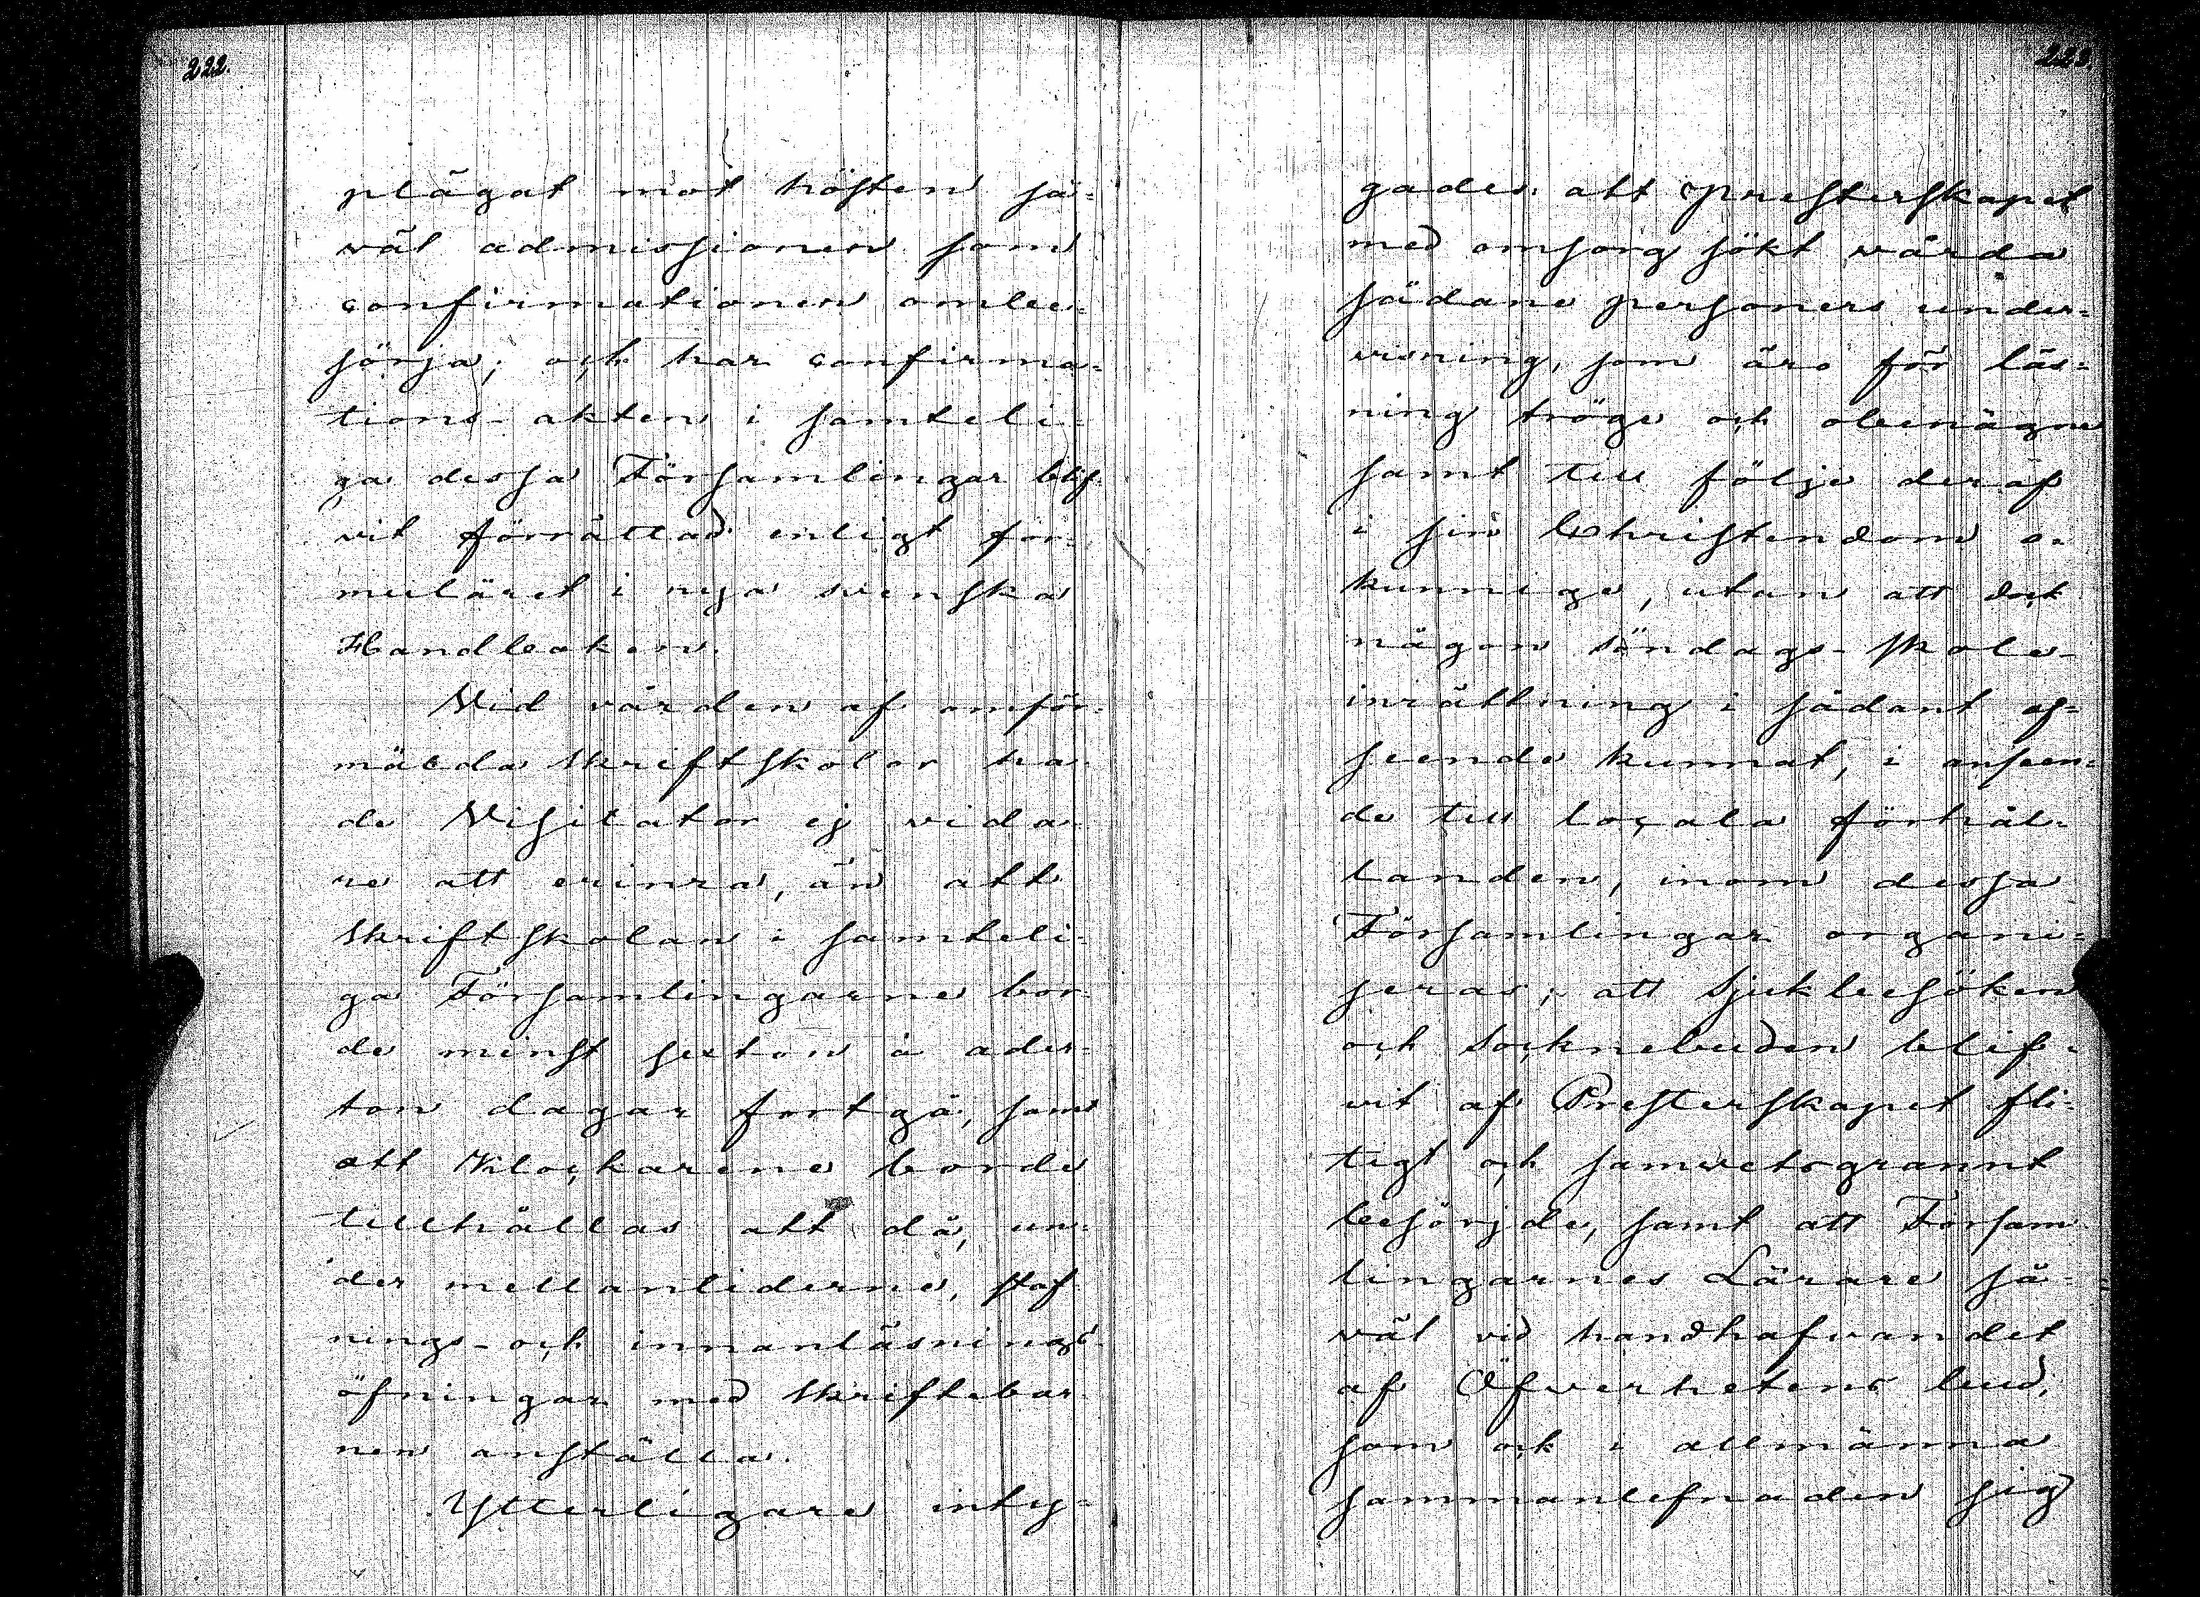 222.
plägat mot hösten så-
väl admissionen som
confirmationen ombe-
sörja; och har confirma-
tions-akten i samteli-
ga dessa Församlingar blif-
vit förrättad enligt for-
muläret i nya svenska
Handboken.
Vid vården af omför-
mälda skriftskolor ha-
de Visitator ej vida-
re att erinra, än att
skriftskolan i samteli-
ga Församlingarne bor-
de minst sexton à ader-
ton dagar fortgå, samt
att Klockarene borde
tillhållas att då, un-
der mellantiderne, staf-
nings- och innanläsnings-
öfningar med skriftebar-
nen anställa.
Ytterligare inty-
223.
gades: att Presterskapet
med omsorg sökt vårda
sådane personers under-
visning, som äro för läs-
ning tröge och obenägne
samt till följe deraf
i sin Christendom o-
kunnige, utan att dock
någon söndags-skole-
inrättning i sådant af-
seende kunnat, i anseen-
de till locala förhål-
landen, inom dessa
Församlingar organi-
seras; att sjukbesöken
och socknebuden blif-
vit af Presterskapet fli-
tigt och samvetsgrannt
besörjde, samt att Försam-
lingarnes Lärare så-
väl vid handhafvandet
af Öfverhetens bud,
som ock i allmänna
sammanlefnaden sig